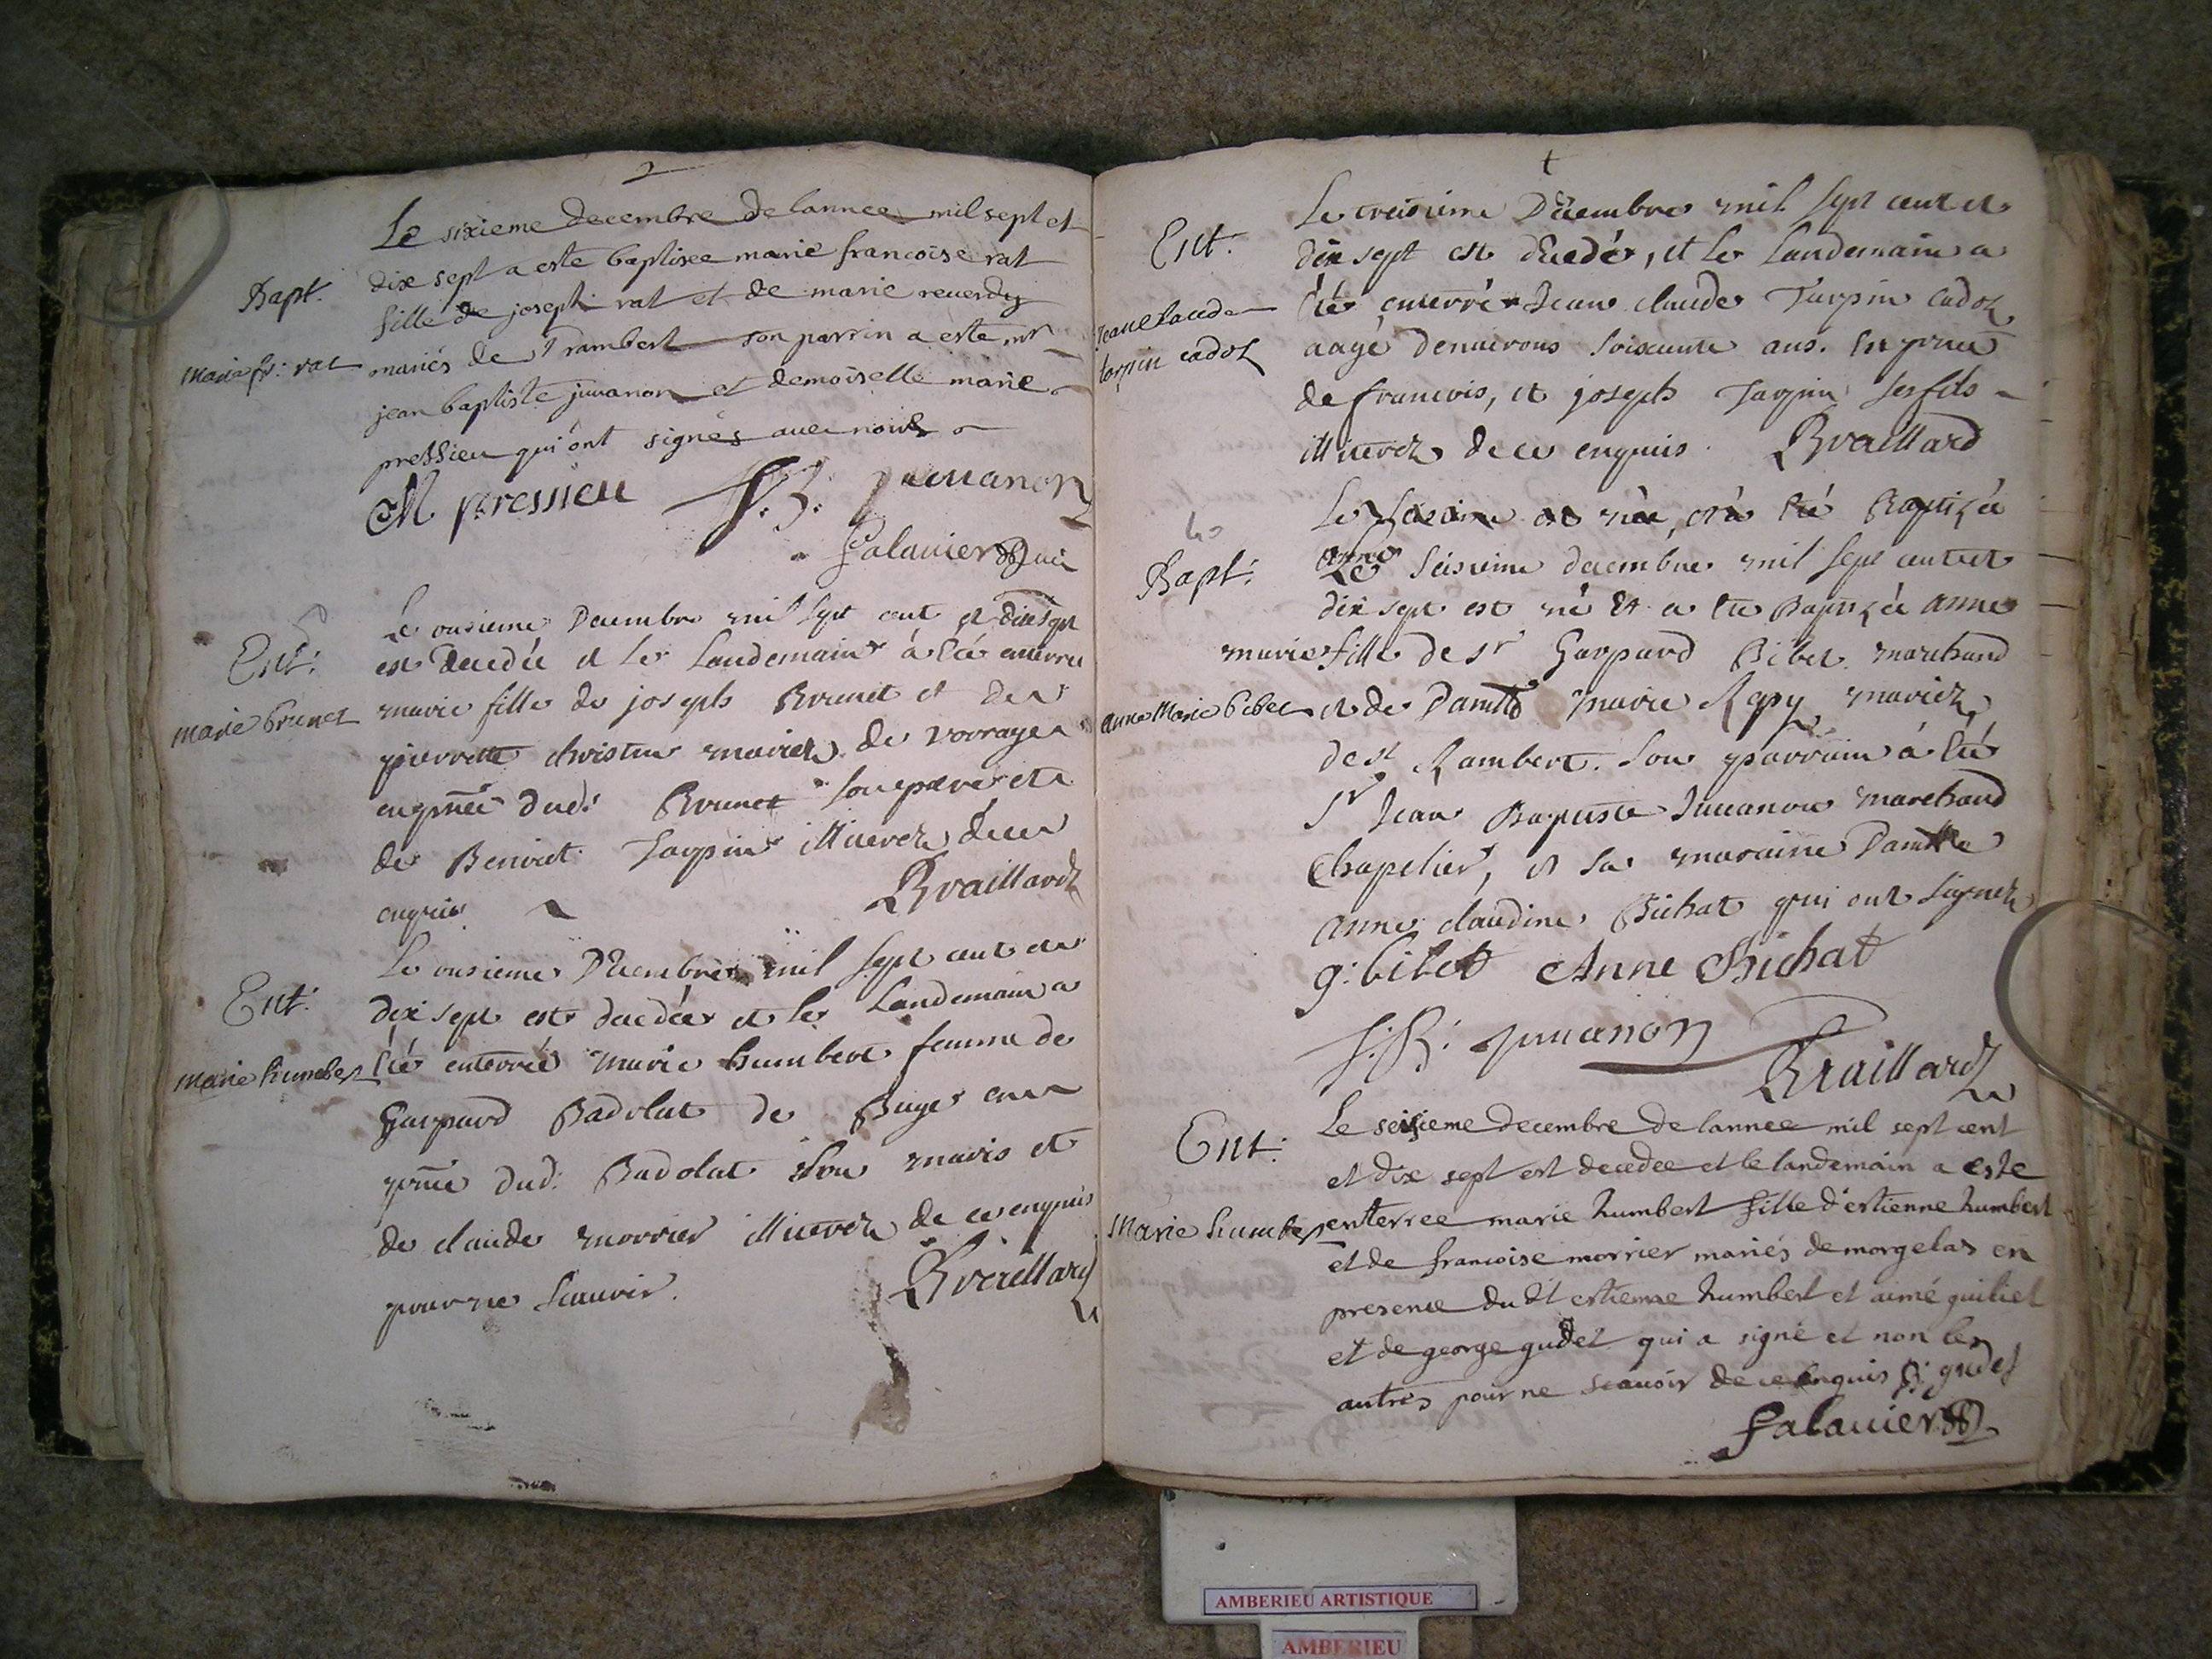 2
Le sixieme decembre de lannee mil sept et
dix sept a este baptisee marie francoise rat
Bapt.
fille de joseph rat et de marie reuerdy
Marie fr: rat
mariés de st rambert son parrin a este mr
jean baptiste juuanon et demoiselle marie
pressieu qui ont signés auec nous
M pressieu J. B: juuanon
falauier
Le onsieme Decembre mil sept cent et dix sept
Ent:
est decedée et le landemain à été enterrée
marie brunet
marie fille de joseph Brunet et de
pierrette christin mariez de vorrage
en pnce dud: Brunet son pere et
de Benoict Tarpin illiterez de ce
enquis
Braillard
Le onsieme Decembre mil sept cent et
Ent:
dix sept est decedée et le landemain a
marie humbert
été enterrée marie humbert femme de
Gaspard Badolat de Buge en
pnce dud. Badolat son maris et
de claude morrier illiterez de ce enquis
pour ne scauoir.
Braillard
t
Le treisieme Decembre mil sept cent et
Ent:
dix sept est decedé, et le landemain a
jean claude
été enterré Jean claude Tarpin cadoz
tarpin cadoz
aagé denuirons soixante ans. En pnce
de francois, et joseph Tarpin ses fils
illiterez de ce enquis. Braillard
Le est née, et à été Baptizée
anne
Bapt:
Le seisieme decembre mil sept cent et
dix sept est né Et a été Baptizée anne
marie fille de sr Gaspard Bibet marchand
anne Marie bibet
et de Damlle marie Rapy mariez
de st Rambert. son parrain à été
sr Jean Baptiste Juuanon marchand
Chapelier, et sa maraine Damlle
anne claudine Bichat qui ont signez
g: bibet Anne Bichat
J. B: juuanon
Braillard
Le seisieme decembre de lannee mil sept cent
Ent:
et dix sept est decedee et le landemain a este
Marie humbert
enterree marie humbert fille d'estienne humbert
et de francoise morrier mariés de morgelas en
presence du dt estienne humbert et aimé guiliet
et de george gudet qui a signé et non les
autres pour ne scauoir de ce enquis g: gudet
falauier
AMBERIEU ARTISTIQUE
AMBERIEU